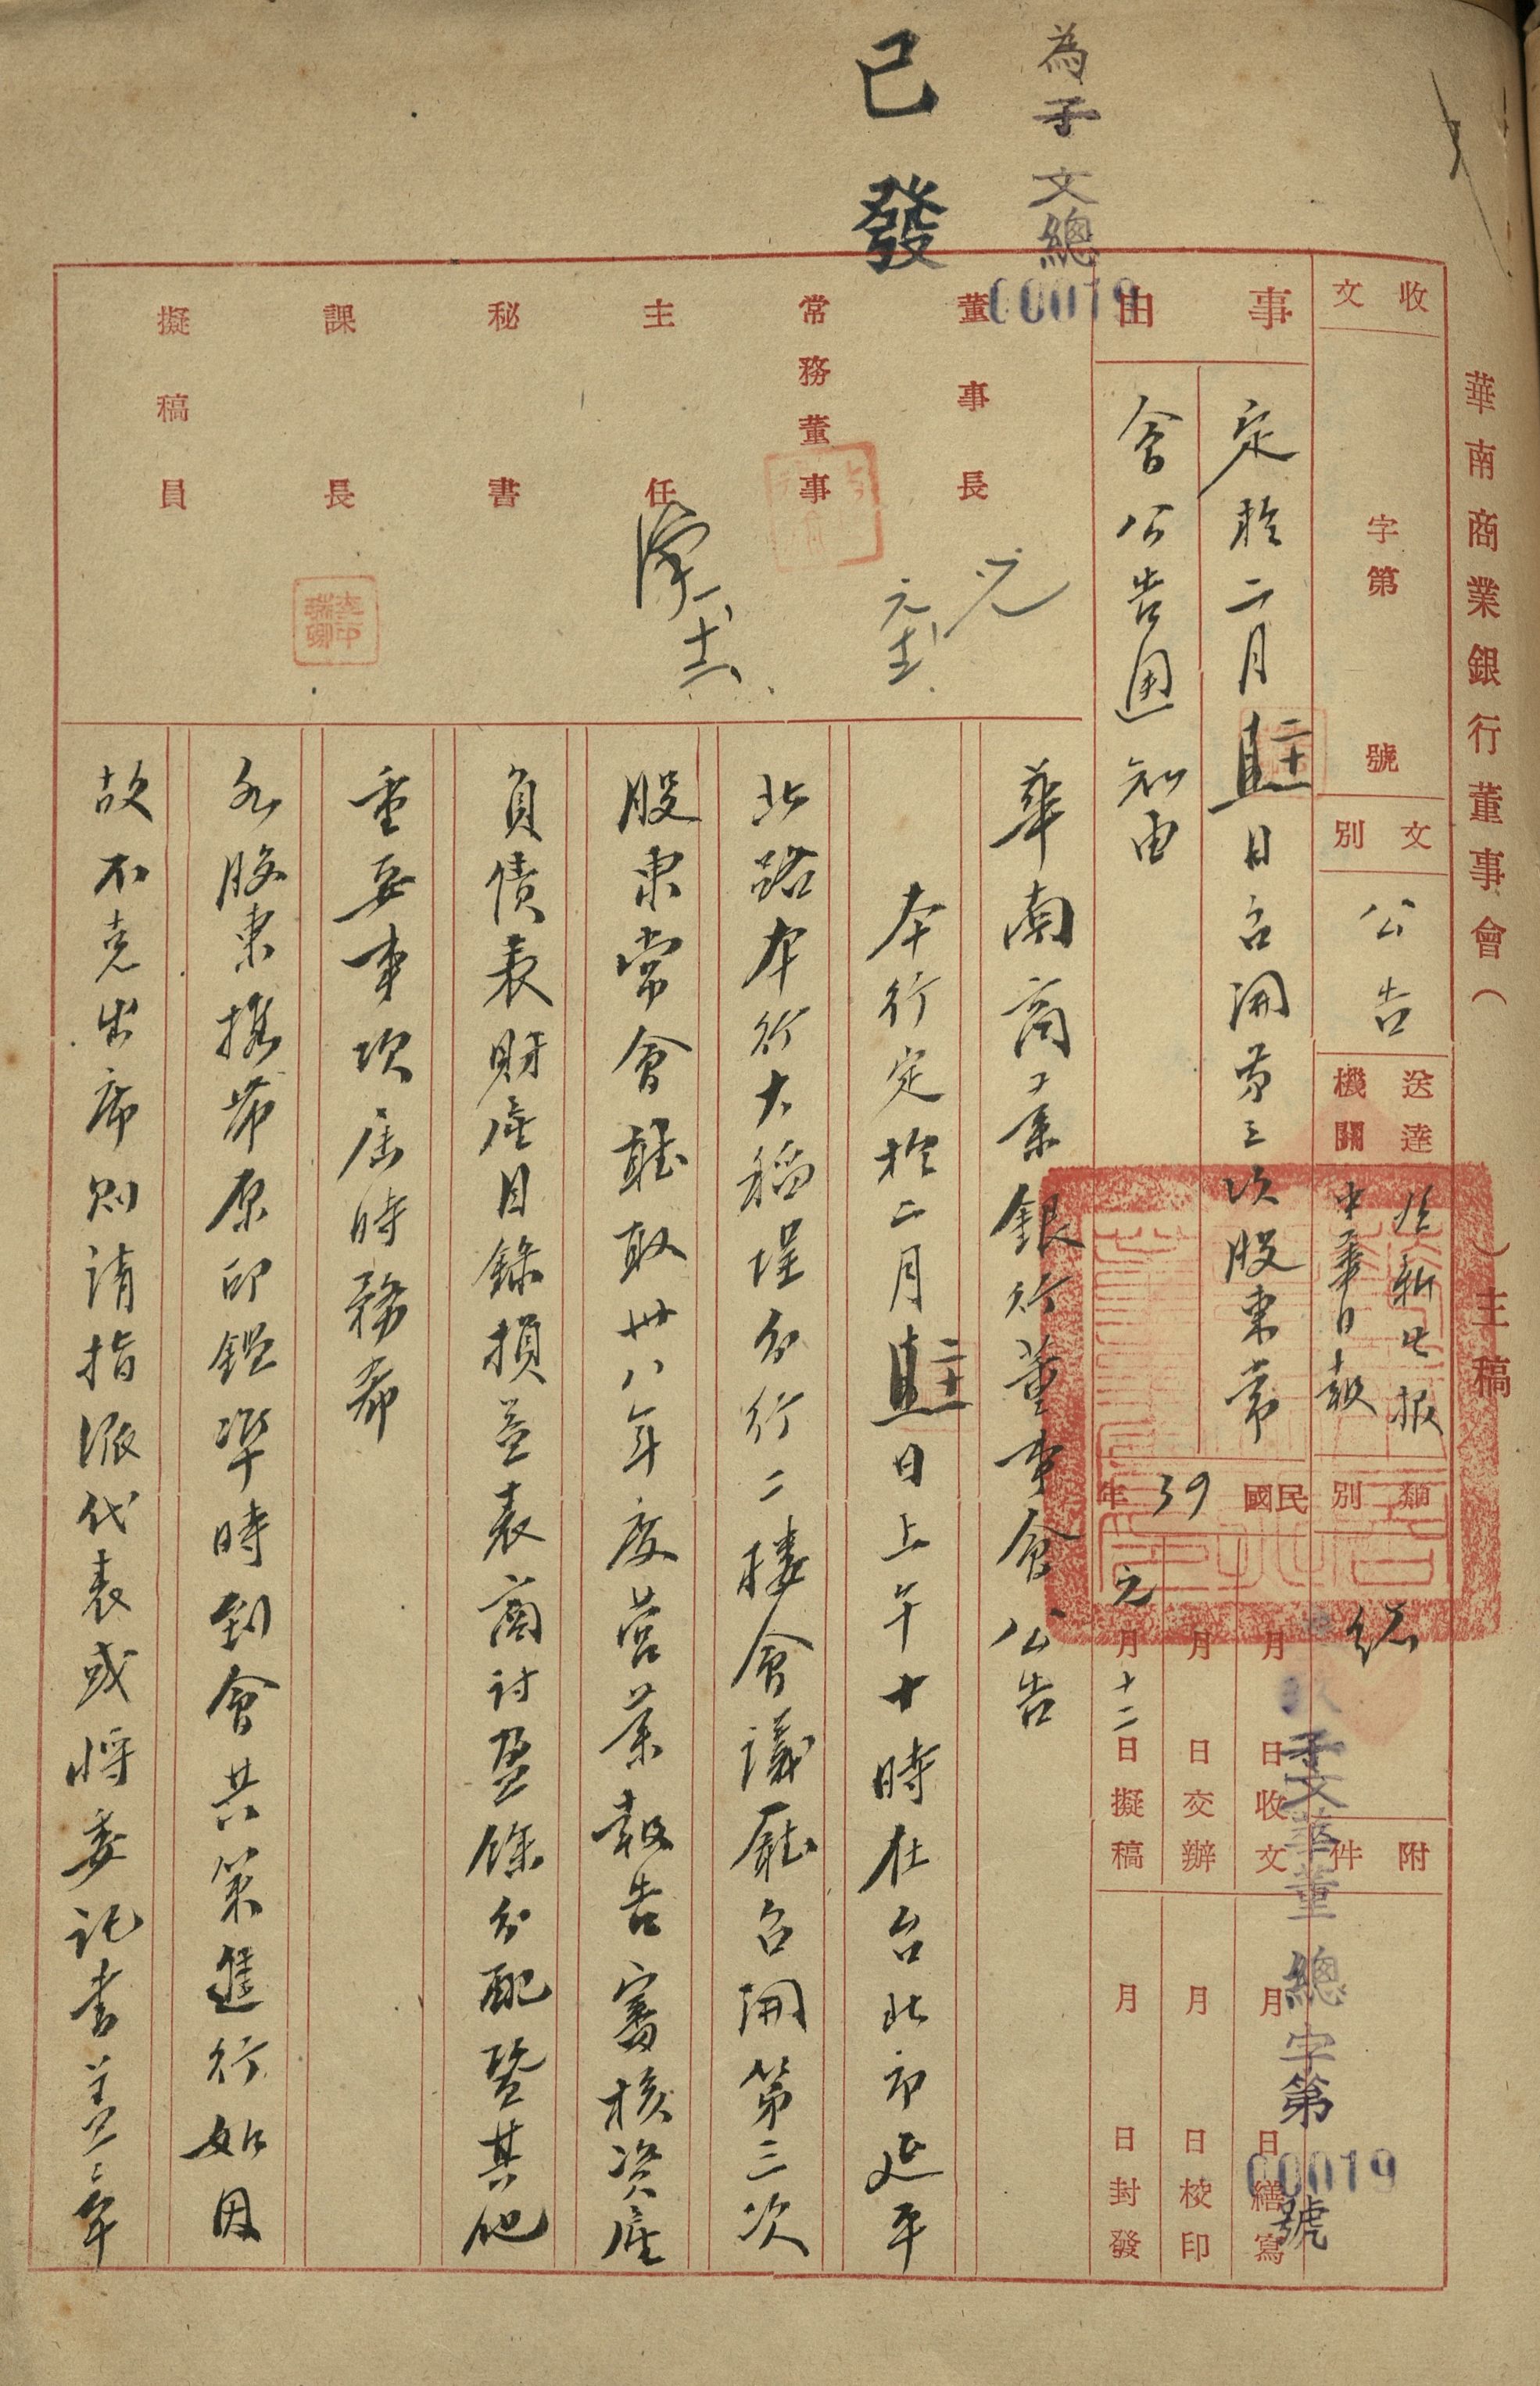 為子文總
00019
已發
華南商業銀行董事會（　）主稿
收文
字第
號
文別
公告
送達機關
新生報
中華日報
類別
總
附件
事由
定於二月二十日召開第三次股東常
會公告通知由
民國39年
月　日收文
月　日交辦
元月十二日擬稿
月　日繕寫
月　日校印
月　日封發
文華董總字第00019號
董事長
常務董事
主任
秘書
課長
擬稿員
華南商業銀行董事會公告
本行定於二月二十日上午十時在台北市延平
北路本行大稻埕分行二樓會議廳召開第三次
股東常會聽取卅八年度營業報告審核資產
負債表財產目錄損益表商討盈餘分配暨其他
重要事項屆時務希
各股東携帶原印鑑準時到會共策進行如因
故不克出席則請指派代表或將委託書蓋章